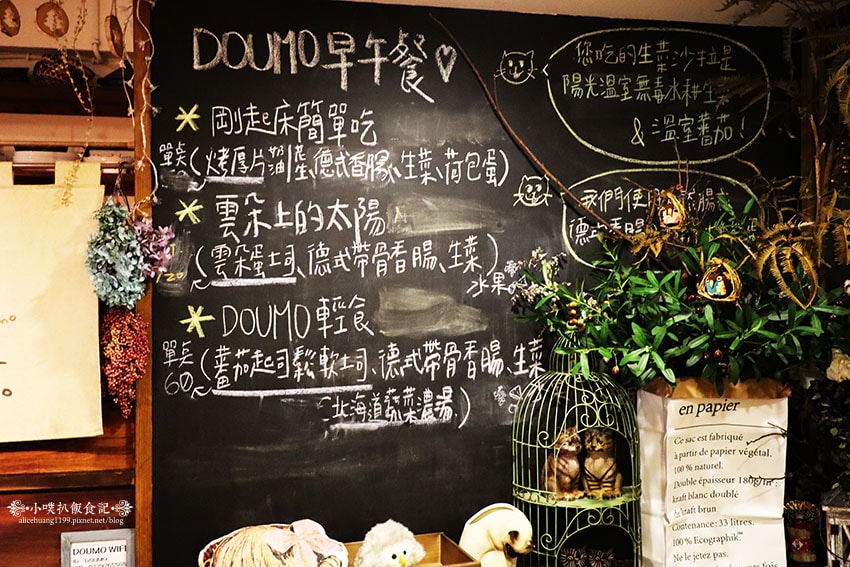 DOUMO早午餐♡
* 剛起床簡單吃
單點(烤厚片、德式香腸、生菜、荷包蛋)
* 雲朵上的太陽
120(雲朵蛋土司、德式帶骨香腸、生菜)
水果
* DOUMO輕食
單點
60~(蕃茄起司鬆軟土司、德式帶骨香腸、生菜
北海道蔬菜濃湯)
您吃的生菜沙拉是
陽光溫室無毒水耕生菜
& 溫室蕃茄!
我們使用
德式香腸
en papier
Ce sac est fabriqué
à partir de papier végétal,
100 % naturel.
Double épaisseur 180g/m²:
kraft blanc doublé
kraft brun
Contenance: 33 litres.
100 % Ecographik™
Ne le jetez pas.
fois
DOUMO WIFI
ID - DOUMO
小噗扒飯食記
alicehuang1199.pixnet.net/blog